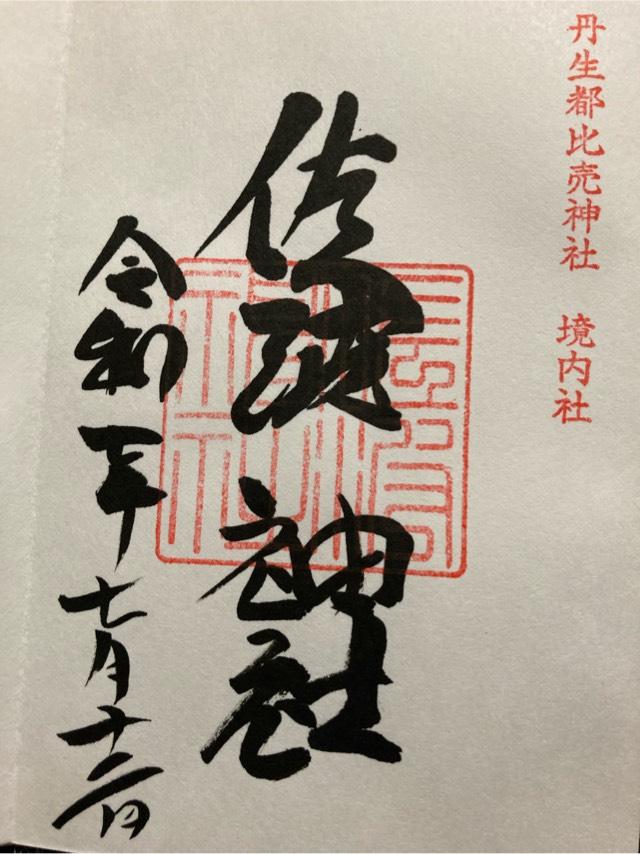 丹生都比売神社 境内社
佐波神社
令和年七月十二日